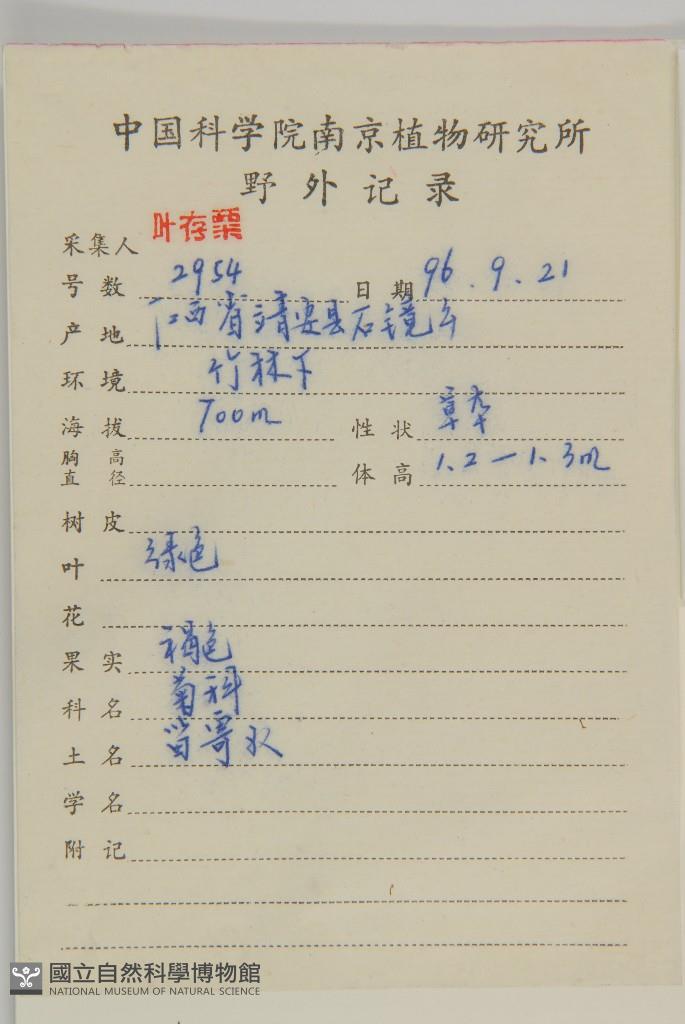 中国科学院南京植物研究所
野外记录
采集人 叶存粟
号数 2954 日期 96.9.21
产地 江西省靖安县石镜乡
环境 竹林下
海拔 700m 性状 草本
胸高直径 体高 1.2—1.3m
树皮
叶 绿色
花
果实 褐色
科名 菊科
土名
学名
附记
國立自然科學博物館
NATIONAL MUSEUM OF NATURAL SCIENCE